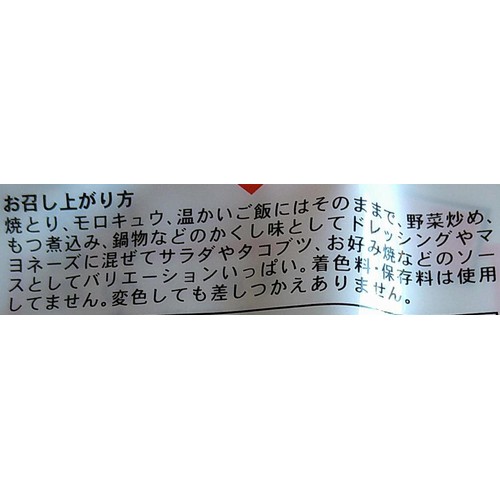 お召し上がり方
焼とり、モロキュウ、温かいご飯にはそのままで、野菜炒め、
もつ煮込み、鍋物などのかくし味としてドレッシングやマ
ヨネーズに混ぜてサラダやタコブツ、お好み焼などのソー
スとしてバリエーションいっぱい。着色料・保存料は使用
してません。変色しても差しつかえありません。